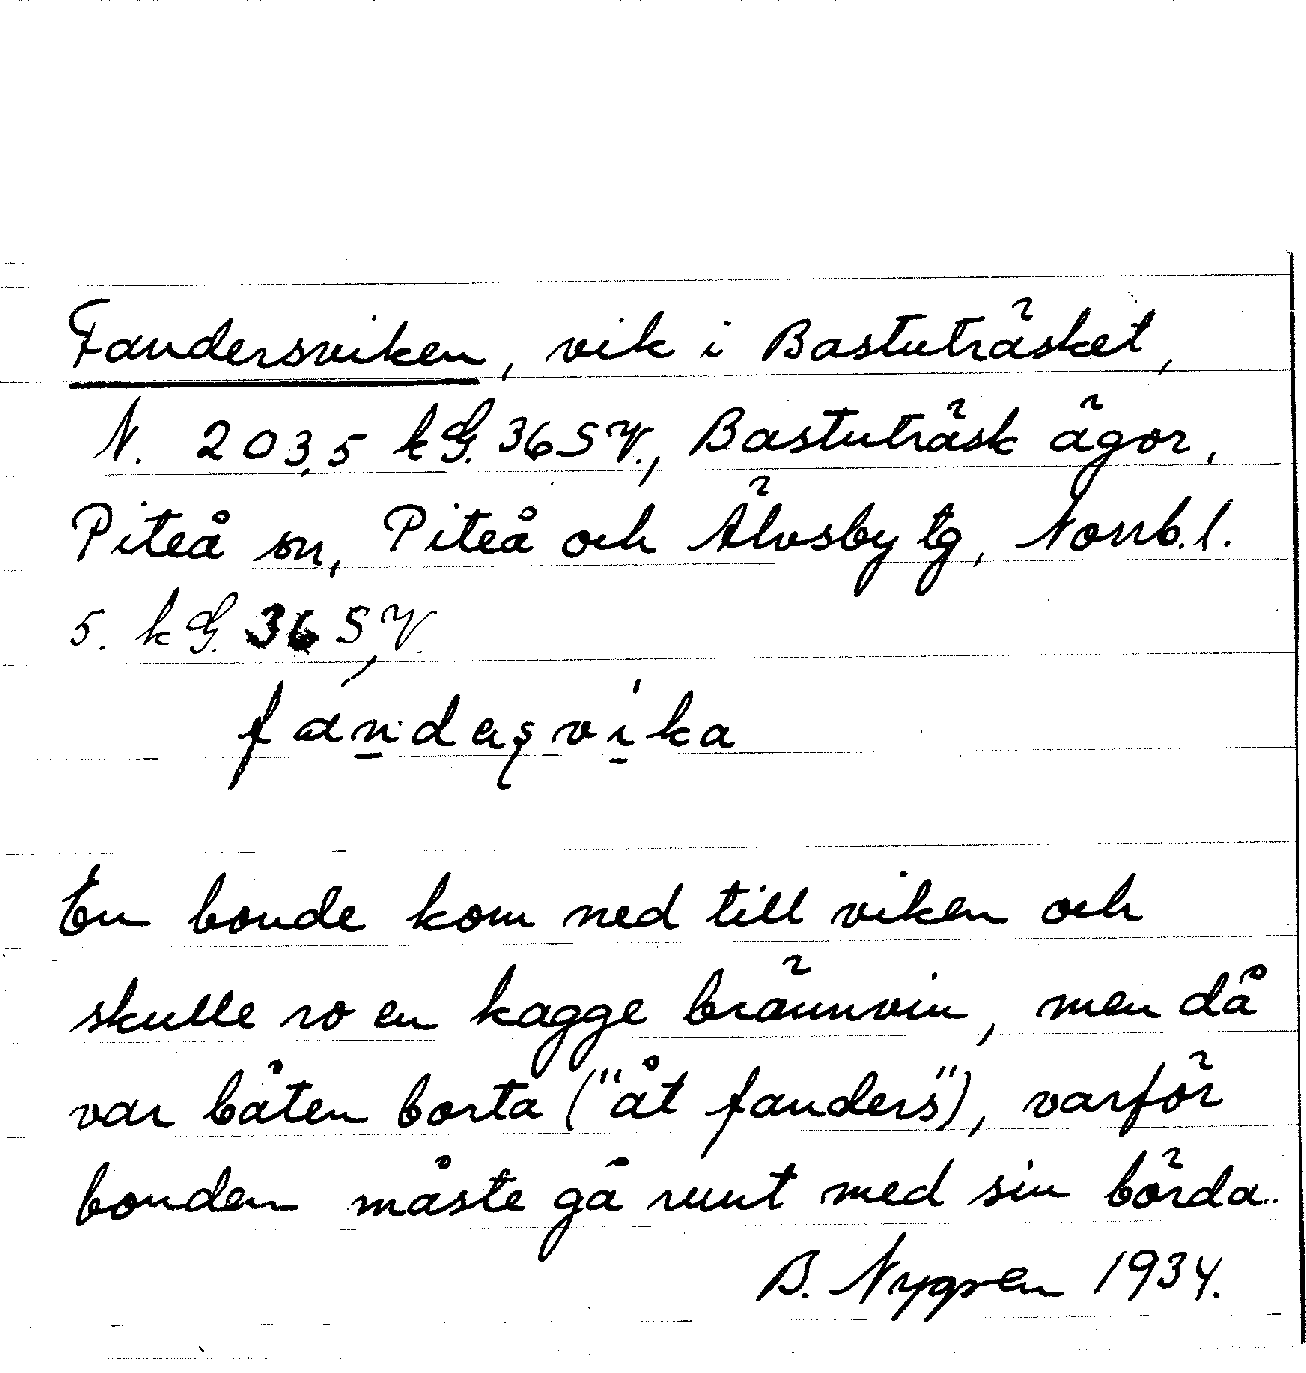 Fandersviken, vik i Bastuträsket,
N. 203,5 kG. 36 SV., Bastuträsk ägor,
Piteå sn, Piteå och Älvsby tg, Norrb. l.
5. kG. 36 S,V.
fandasvika
En bonde kom ned till viken och
skulle ro en kagge brännvin, men då
var båten borta ("åt fanders"), varför
bonden måste gå runt med sin börda.
B. Nygren 1934.